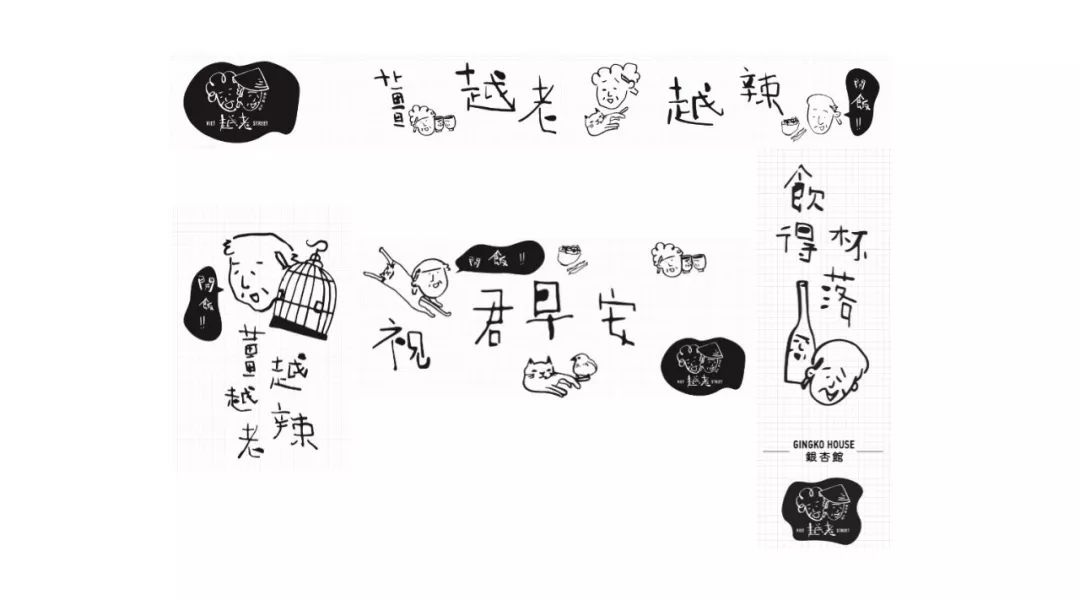 VIET 越老 STREET
薑越老越辣
開飯!!
開飯!!
薑越老
越辣
開飯!!
祝君早安
VIET 越老 STREET
飲
得杯
落
GINGKO HOUSE
銀杏館
VIET 越老 STREET